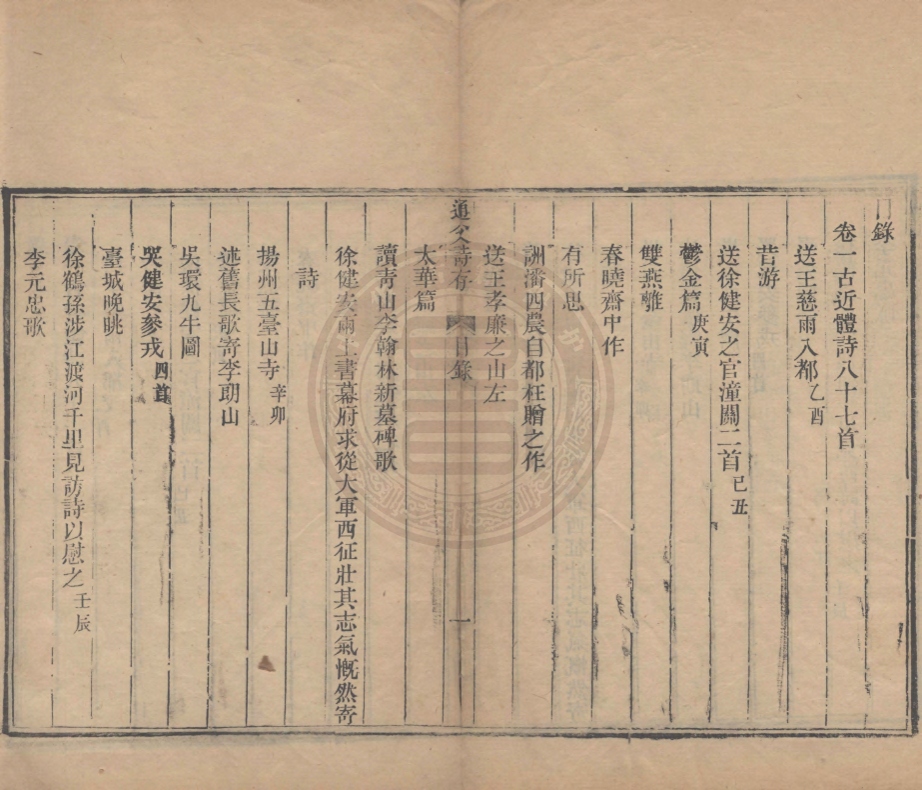 目錄
卷一古近體詩八十七首
送王慈雨入都乙酉
昔游
送徐健安之官潼關二首己丑
鬱金篇庚寅
雙燕雛
春曉齋中作
有所思
詶潘四農自都枉贈之作
送王孝廉之山左
通父詩存 目錄 一
太華篇
讀青山李翰林新墓碑歌
徐健安兩上書幕府求從大軍西征壯其志氣慨然寄
詩
揚州五臺山寺辛卯
述舊長歌寄李助山
吳環九牛圖
哭健安參戎四首
臺城晚眺
徐鶴孫涉江渡河千里見訪詩以慰之壬辰
李元忠歌